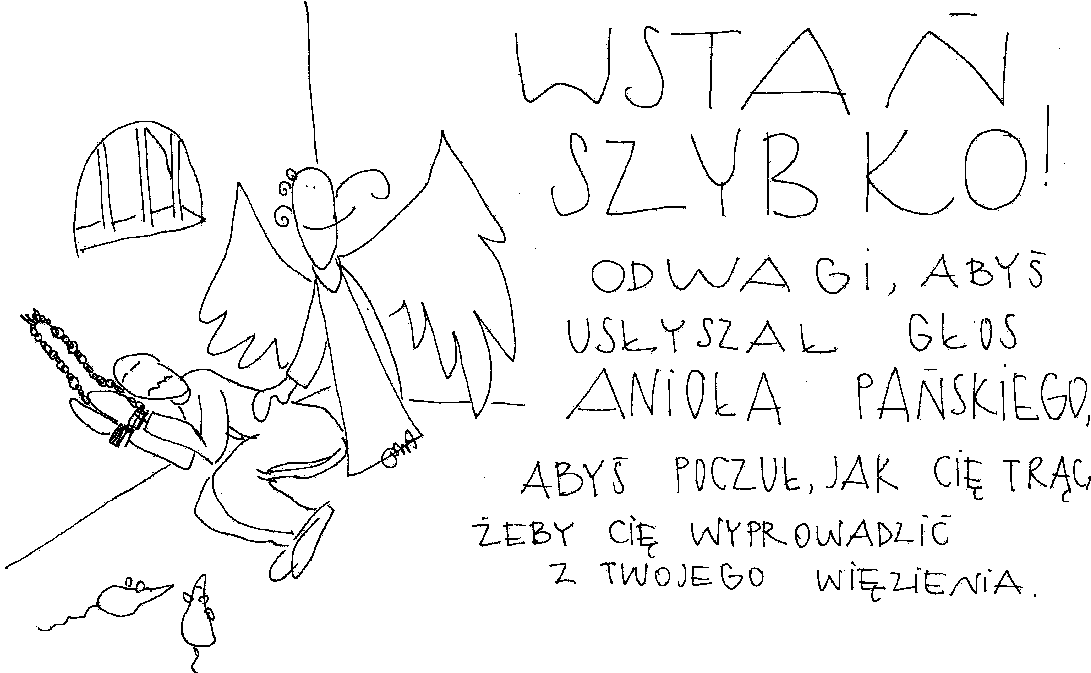 WSTAŃ
SZYBKO!
ODWAGI, ABYŚ
USŁYSZAŁ GŁOS
ANIOŁA PAŃSKIEGO,
ABYŚ POCZUŁ, JAK CIĘ TRĄC
ŻEBY CIĘ WYPROWADZIĆ
Z TWOJEGO WIĘZIENIA.